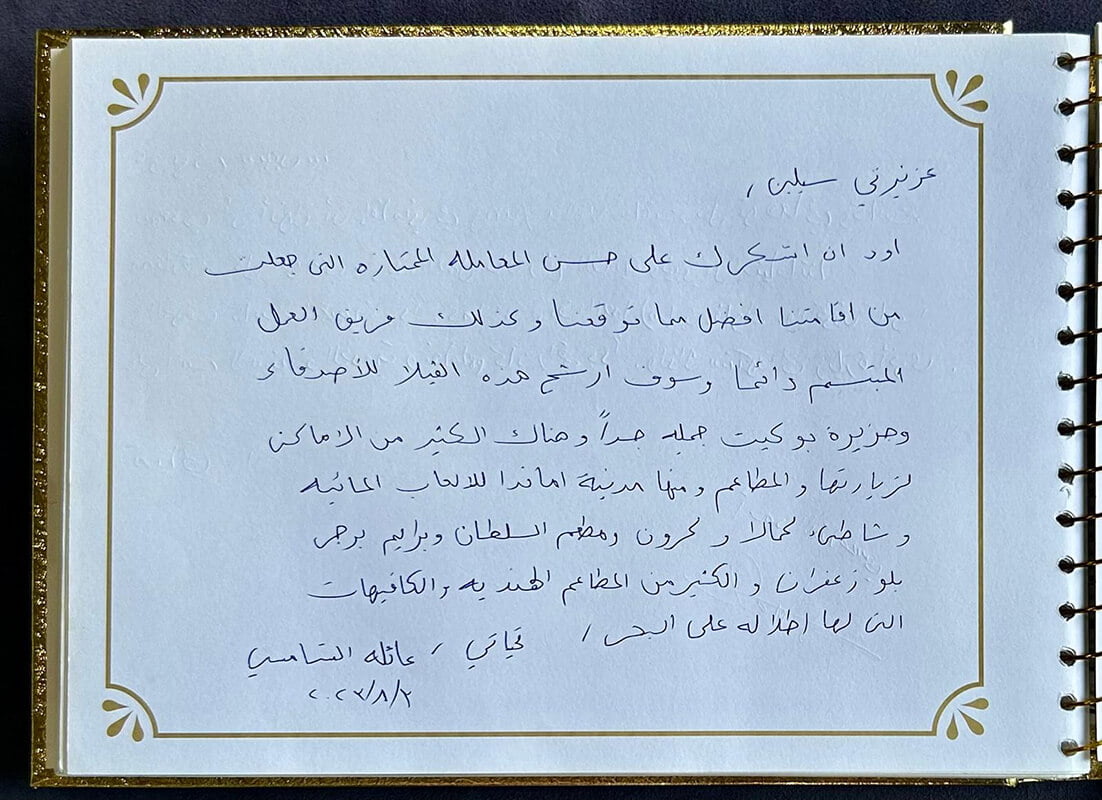 عزيزتي سيلين ,
اود ان اشكرك على حسن المعامله الممتازه التي جعلت
من اقامتنا افضل مما توقعنا وكذلك فريق العمل
المبتسم دائما وسوف ارشح هذه الفيلا للأصدقاء
وجزيرة بوكيت جميله جداً وهناك الكثير من الاماكن
لزيارتها والمطاعم ومنها مدينة اماندا للالعاب المائيه
وشاطىء كمالا و كرون ومطعم السلطان وبرايم برجر
بلو زعفران و الكثير من المطاعم الهنديه والكافيهات
التي لها اطلاله على البحر /
تحياتي / عائله الشامسي
٢٠٢٣/٨/٢